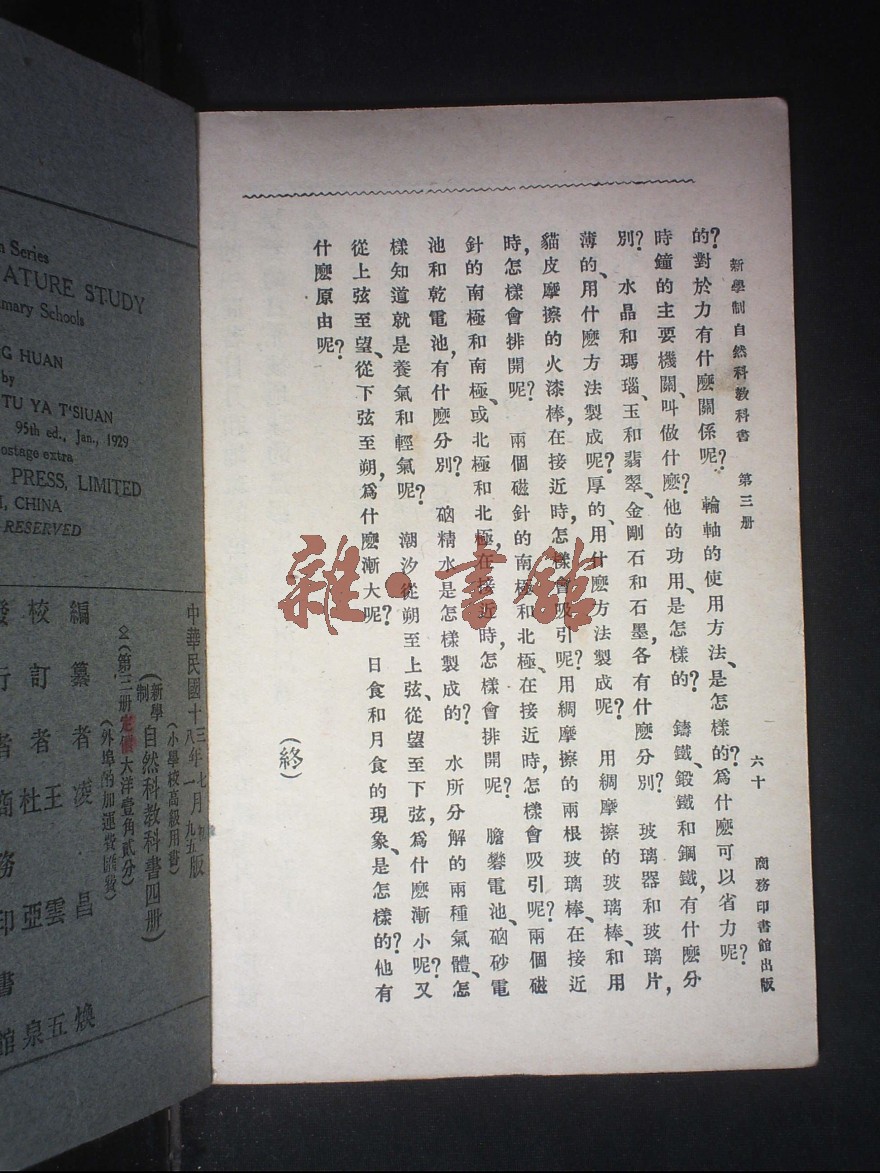 新學制自然科教科書 第三册 六十 商務印書館出版
的?對於力有什麽關係呢? 輪軸的使用方法、是怎樣的?爲什麽可以省力呢?
時鐘的主要機關、叫做什麽?他的功用、是怎樣的? 鑄鐵、鍛鐵和鋼鐵,有什麽分
別? 水晶和瑪瑙、玉和翡翠、金剛石和石墨,各有什麽分別? 玻璃器和玻璃片,
薄的、用什麽方法製成呢?厚的、用什麽方法製成呢? 用綢摩擦的玻璃棒、和用
貓皮摩擦的火漆棒,在接近時,怎樣會吸引呢?用綢摩擦的兩根玻璃棒、在接近
時,怎樣會排開呢? 兩個磁針的南極和北極、在接近時,怎樣會吸引呢?兩個磁
針的南極和南極、或北極和北極,在接近時,怎樣會排開呢? 膽礬電池、硇砂電
池和乾電池,有什麽分別? 硇精水是怎樣製成的? 水所分解的兩種氣體、怎
樣知道就是養氣和輕氣呢? 潮汐從朔至上弦、從望至下弦,爲什麽漸小呢?又
從上弦至望、從下弦至朔,爲什麽漸大呢? 日食和月食的現象、是怎樣的?他有
什麽原由呢?
(終)
雜·書館
Series
NATURE STUDY
Primary Schools
HUAN
by
TU YA T'SIUAN
95th ed., Jan., 1929
postage extra
PRESS, LIMITED
CHINA
RESERVED
中華民國十三年七月初版
八年一月九五版
(小學校高級用書)
(新學制自然科教科書四册)
(第三册定價大洋壹角貳分)
(外埠酌加運費匯費)
編纂者 凌昌煥
校訂者 王雲五 杜亞泉
發行者 商務印書館